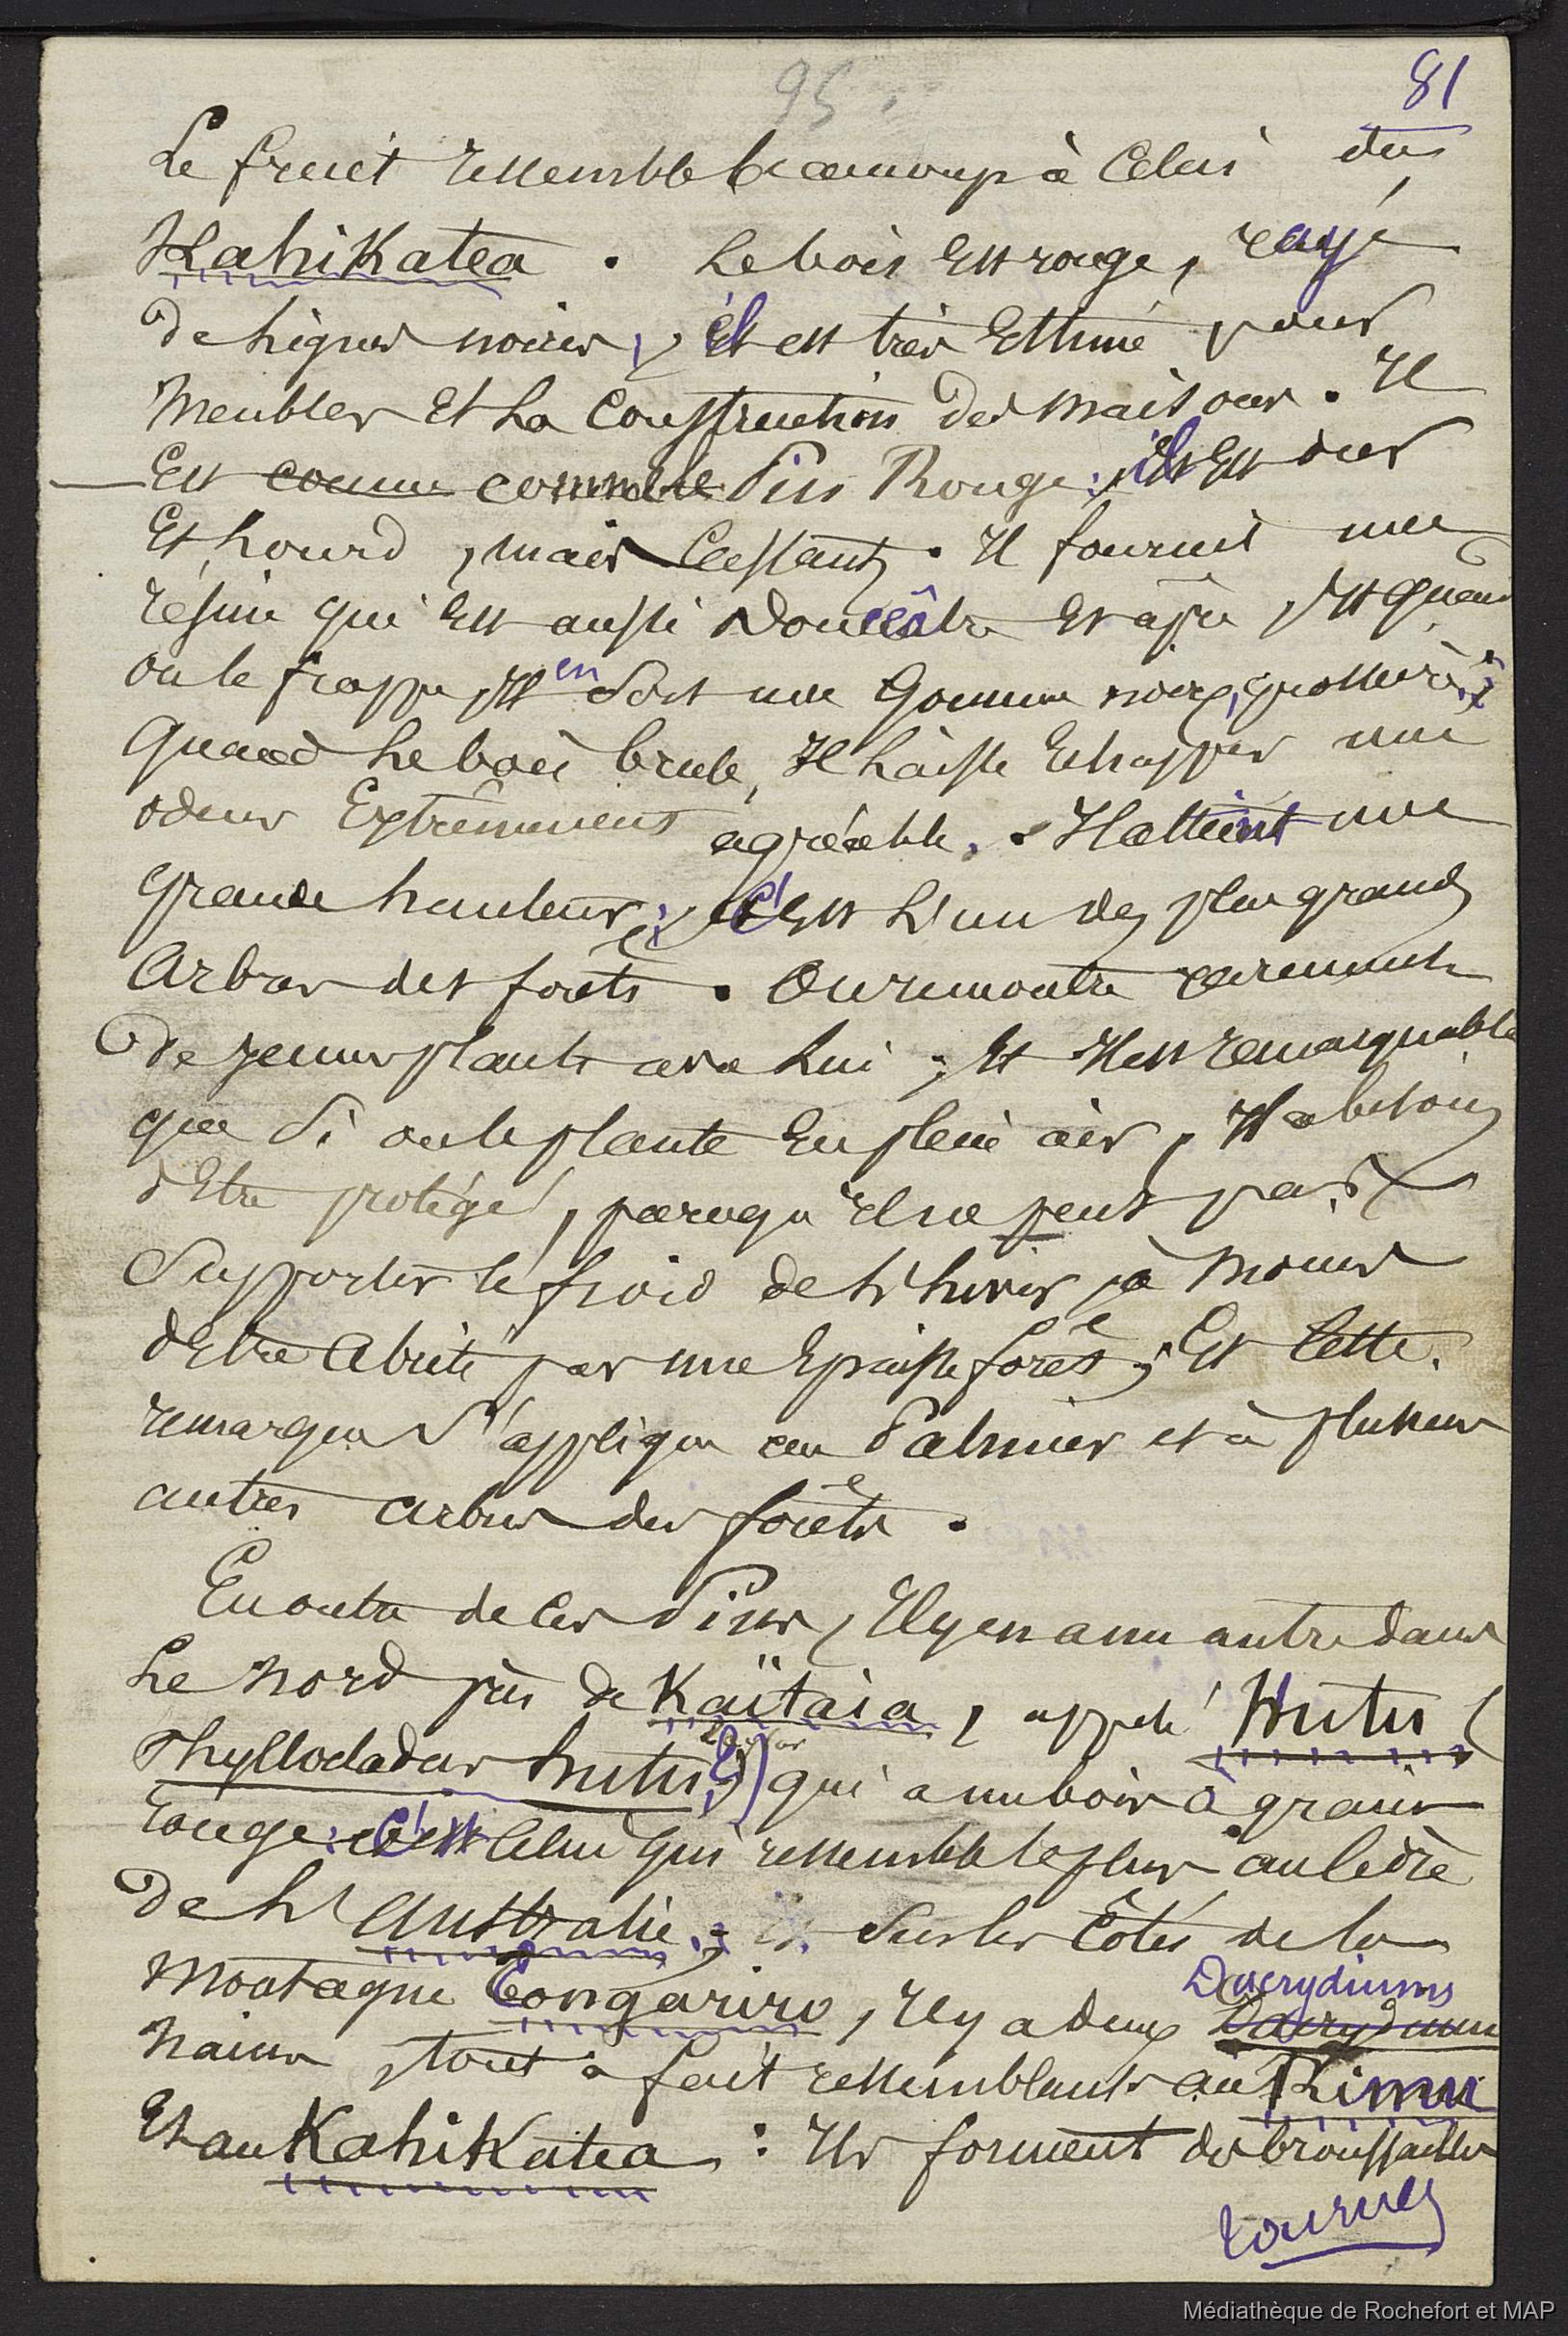 95.
81
Le fruit ressemble beaucoup à celui du
Kahikatea. Le bois est rouge, rayé
de lignes noires, il est très estimé pour
meubles et la construction des maisons. Il
est connu comme le Pin Rouge : il est dur
et lourd, mais cassant. Il fournit une
résine qui est aussi douceâtre et âpre, et quand
on le frappe, il en sort une gomme noire, grossière.
Quand le bois brule, il laisse echapper une
odeur extrêmement agréable. Il atteint une
grande hauteur ; c'est l'un des plus grands
arbres des forêts. On rencontre rarement
de jeunes plants avec lui ; et il est remarquable
que si on le plante en plein air, il a besoin
d'être protégé, parcequ'il ne peut pas
supporter le froid de l'hiver, à moins
d'être abrité par une epaisse forêt ; et cette
remarque s'applique au Palmier et à plusieurs
autres arbres des forêts.
En outre de ces Pins, il y en a un autre dans
le nord près de Kaïtaia, appelé Hutu (
Phyllocladus hutu) qui a un bois à grain
rouge : c'est celui qui ressemble le plus au cèdre
de l'Australie ; sur les côtés de la
montagne Tongariro, il y a deux Dacrydiums
nains, tout à fait ressemblants au Rimu
et au Kahikatea : ils forment des broussailles
tournez
Médiathèque de Rochefort et MAP